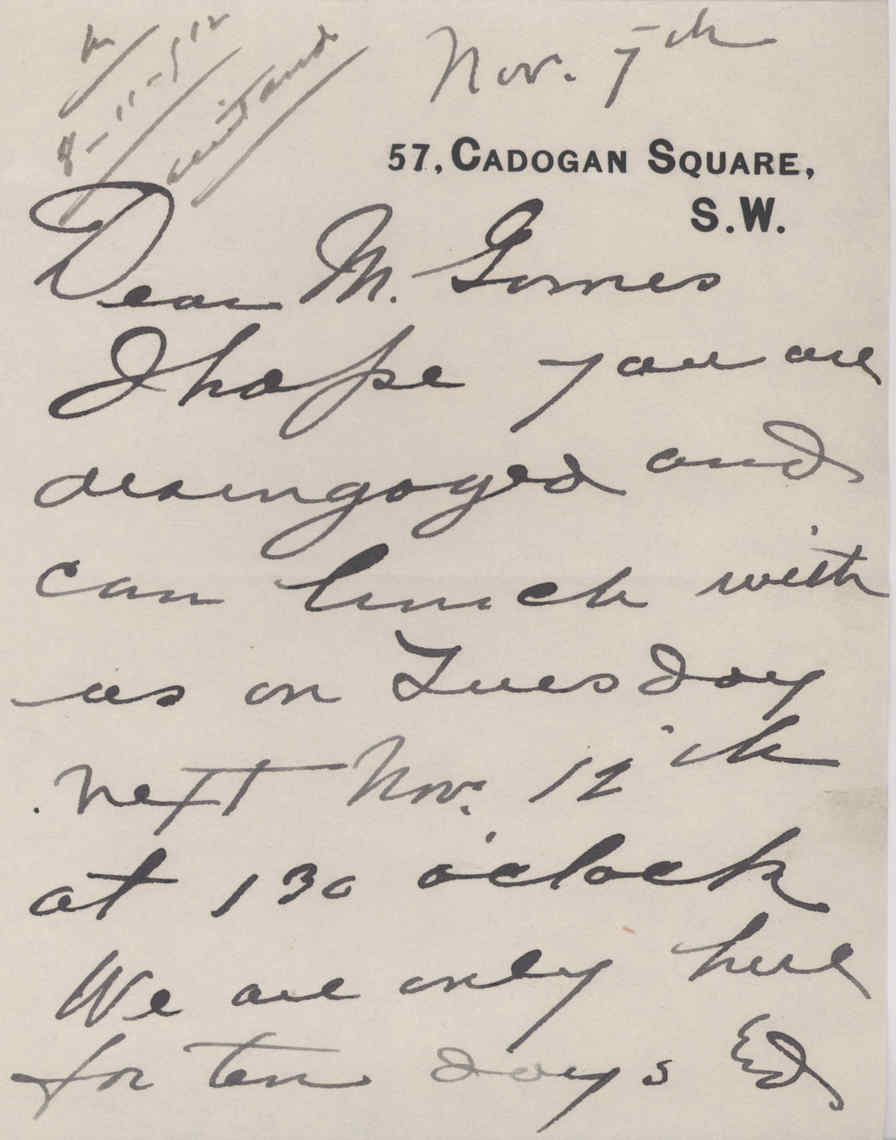 Nov. 7th
8-11-912
57, CADOGAN SQUARE,
S.W.
Dear M. Gomes
I hope you are
disengaged and
can lunch with
us on Tuesday
next Nov: 12th
at 1 30 o'clock
We are only here
for ten days